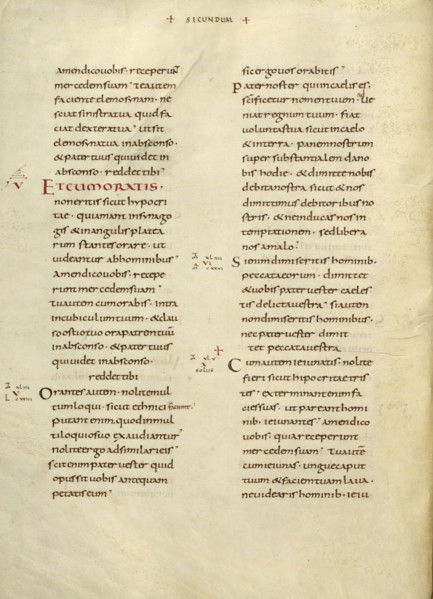 + SECUNDUM +
amendico uobis. receperun̄
mercedem suam. te autem
faciente elemosynam. ne
sciat sinistra tua quid fa
ciat dextera tua. ut sit
elemosyna tua in absconso.
& pater tuus qui uidet in
absconso. reddet tibi.
V ET CUM ORATIS.
non eritis sicut hypocri
tae. qui amant in synago
gis & in angulis platea
rum stantes orare. ut
uideantur ab hominibus.
Amen dico uobis. recepe
runt mercedem suam.
tu autem cum orabis. intra
in cubiculum tuum. & clau
so ostio tuo ora patrem tuū
in absconso. & pater tuus
qui uidet in absconso.
reddet tibi
Orantes autem. nolite mul
tum loqui. sicut ethnici
putant enim quod in mul
tiloquio suo exaudiantur.
nolite ergo adsimilari eis.
scit enim pater uester quid
opus sit uobis antequam
petatis eum.
sic ergo uos orabitis.
Pater noster qui in caelis es.
scificetur nomen tuum. Ue
niat regnum tuum. fiat
uoluntas tua sicut in caelo
& in terra. panem nostrum
super substantialem da no
bis hodie. & dimitte nobis
debita nostra sicut & nos
dimittimus debitoribus no
stris. & ne inducas nos in
temptationem. sed libera
nos a malo.
Si enim dimiseritis hominib.
peccata eorum. dimittet
& uobis pater uester caeles
tis delicta uestra. si autem
non dimiseritis hominibus.
nec pater uester dimit
tet peccata uestra
Cum autem ieiunatis. nolite
fieri sicut hipocritae tris
tes. exterminant enim fa
cies suas. ut pareant homi
nib. ieiunantes. amen dico
uobis. quia receperunt
mercedem suam. Tu autē
cum ieiunas. ungue caput
tuum & faciem tuam laua.
ne uidearis hominib. ieiu